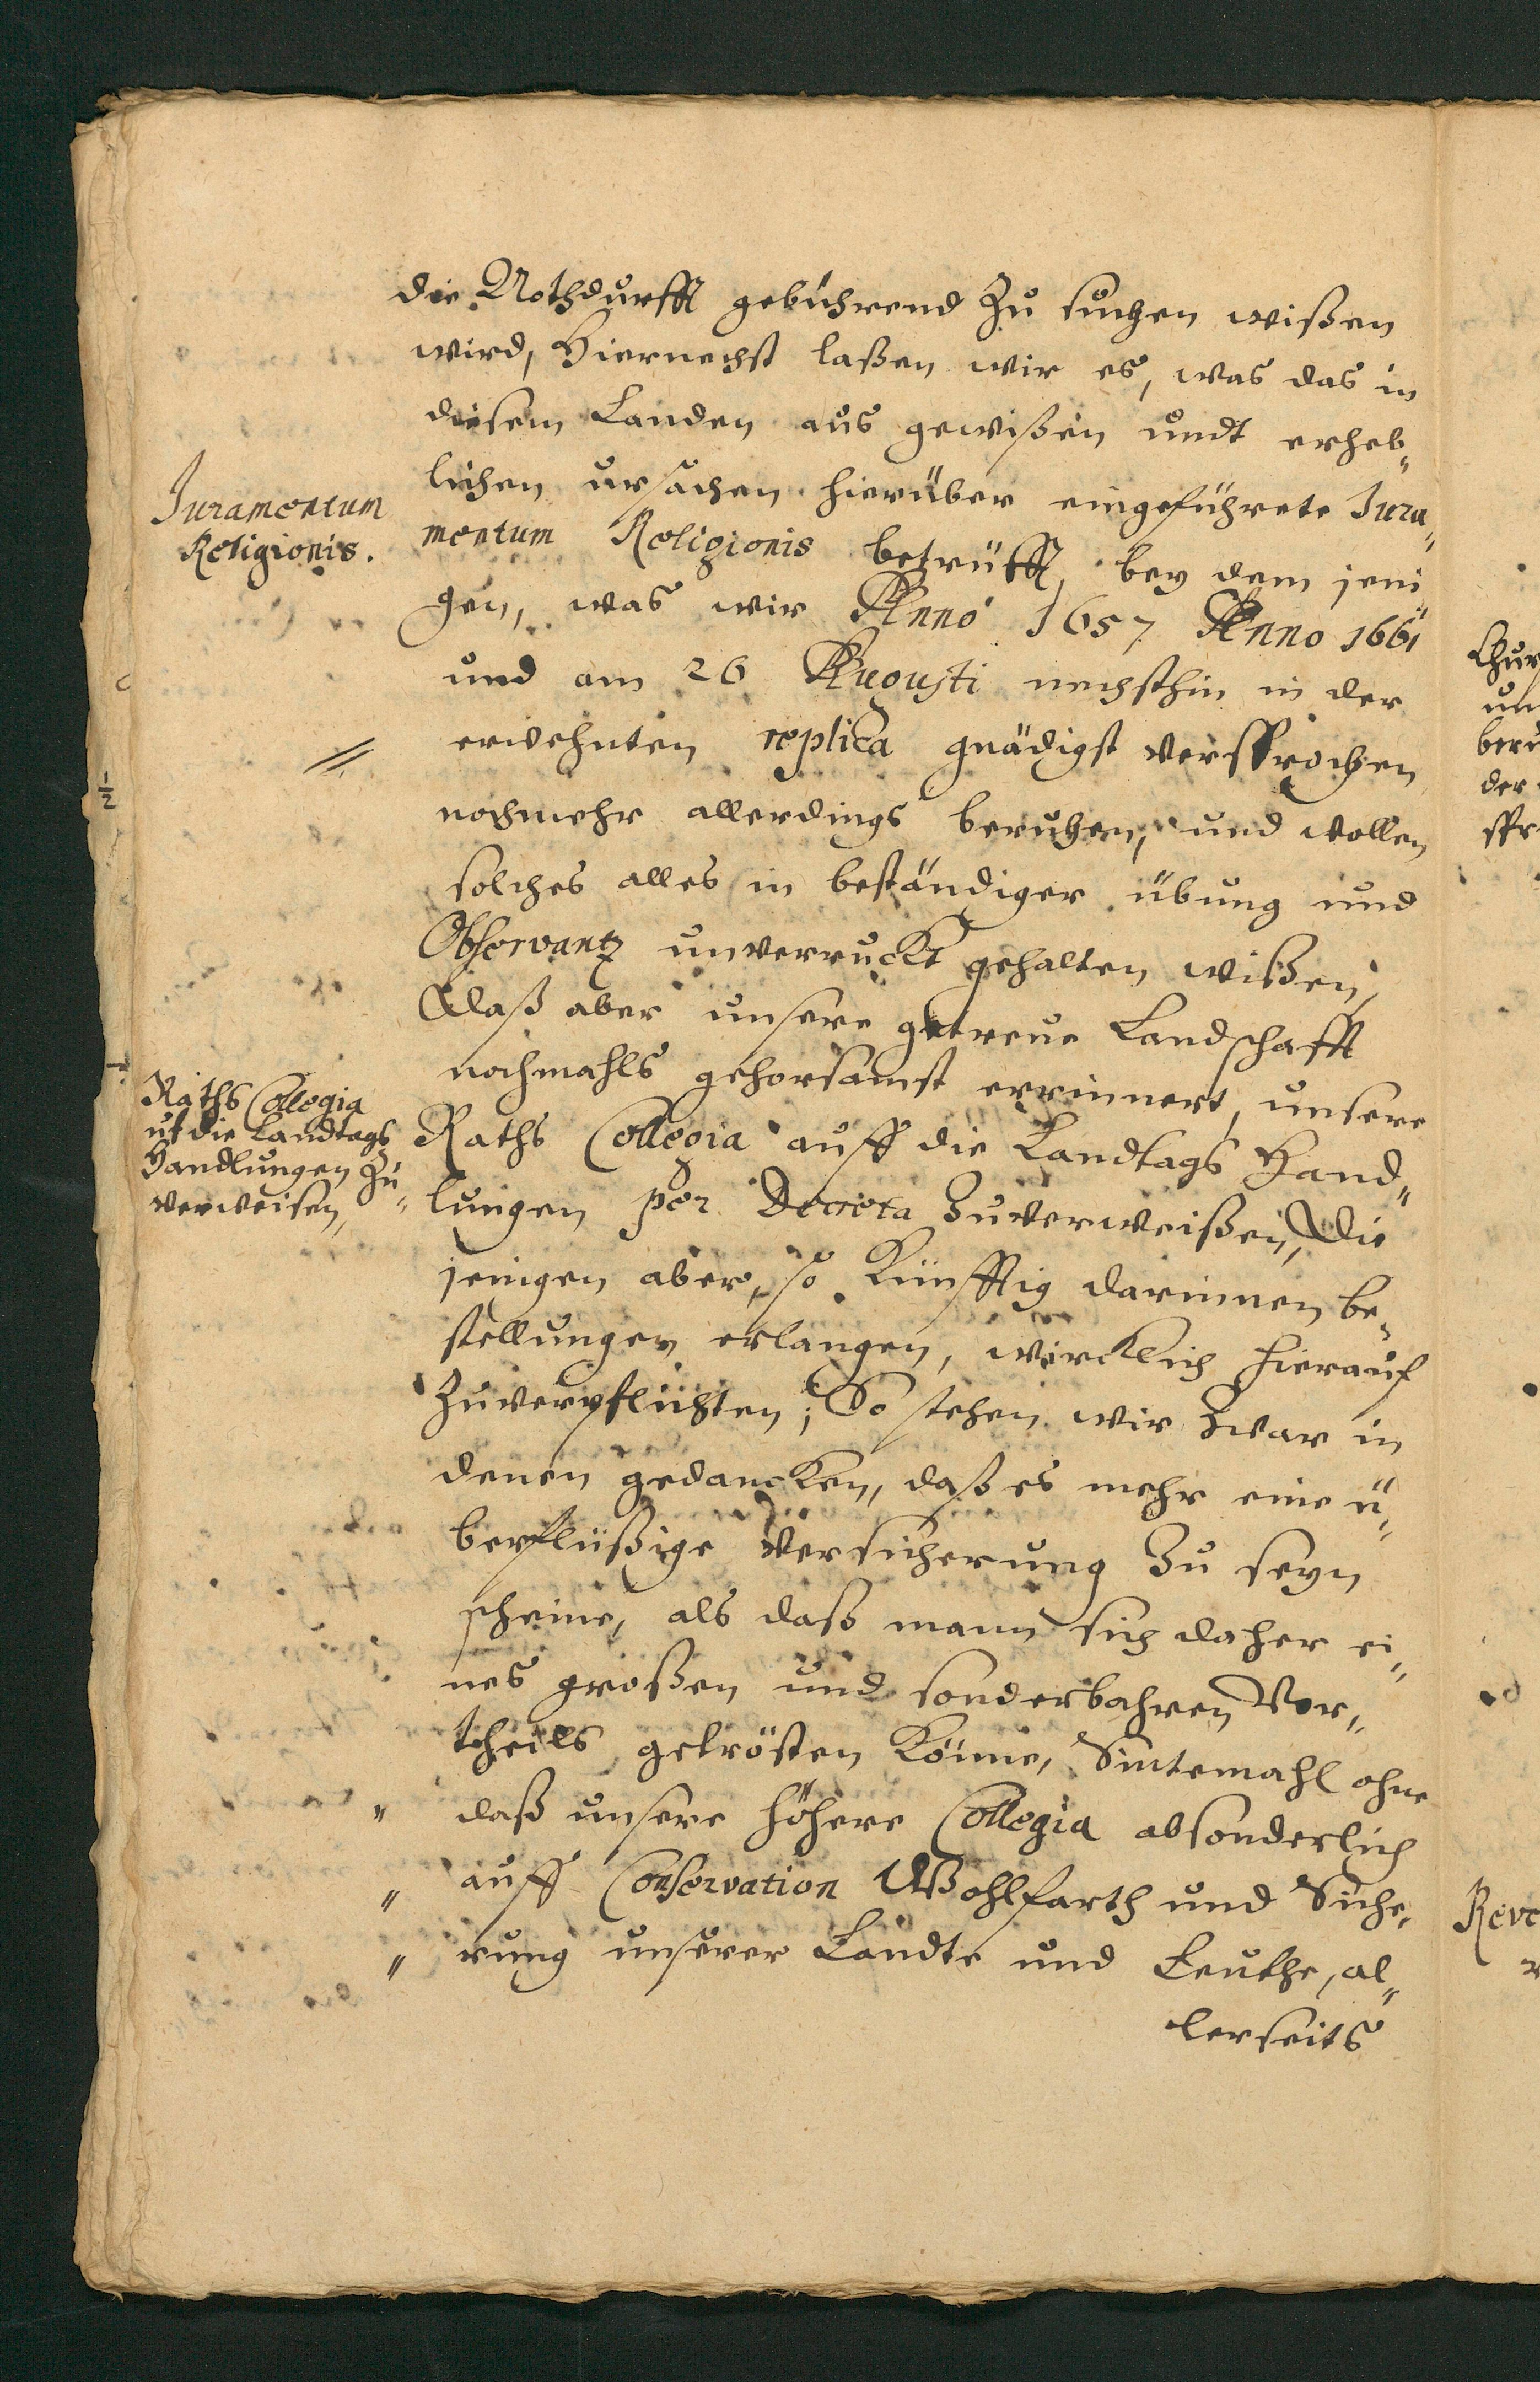 die Nothdurfft gebührend Zu suchen wißen
wird, Hiernechst laßen wir es, was das in
diesem Landen aus gewißen undt erheb„
lichen ursachen hierüber eingeführete Jura„
Juramentum
Religionis.
mentum Religionis betrüfft, bey dem jeni
gen, was wir Anno 1657 Anno 1661
und am 26 Augusti nechsthin in der
erwehnten replica gnädigst versprochen
nochmehr allerdings beruhen, und wollen
solches alles in beständiger übung und
Observantz unverruckt gehalten wißen,
Daß aber unsere getreue Landschafft
nochmahls gehorsamst errinnert, unsere
Raths Collegia
uf die Landtags
Handlungen Zu„
verweisen,
Raths Collegia auff die Landtags Hand„
lungen per Decreta Zuverweißen, Die
jenigen aber, so Künfftig darinnen be„
stellungen erlangen, würcklich hierauf
Zuverpflichten; So stehen wir Zwar in
denen gedancken, daß es mehr eine ü„
berflüßige Versicherung Zu seyn
scheine, als daß mann sich daher ei„
nes großen und sonderbahren Vor„
theils getrösten Könne, Sintemahl ohne
„ daß unsere höhere Collegia absonderlich
„ auff Conservation Wohlfarth und Siche„
„ rung unserer Landte und Leuthe, al„
lerseits
Chur
un
ber
der
spr
Reve